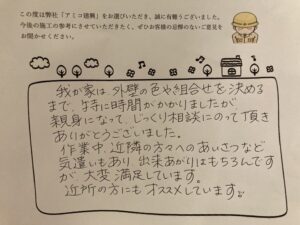 この度は弊社「アミコ建興」をお選びいただき、誠に有難うございました。
今後の施工の参考にさせていただきたく、ぜひお客様の忌憚のないご意見を
お聞かせください。
我が家は、外壁の色や組合せを決める
まで、特に時間がかかりましたが
親身になって、じっくり相談にのって頂き
ありがとうございました。
作業中、近隣の方々へのあいさつなど
気遣いもあり、出来あがりはもちろんです
が、大変満足しています。
近所の方にもオススメしています!!